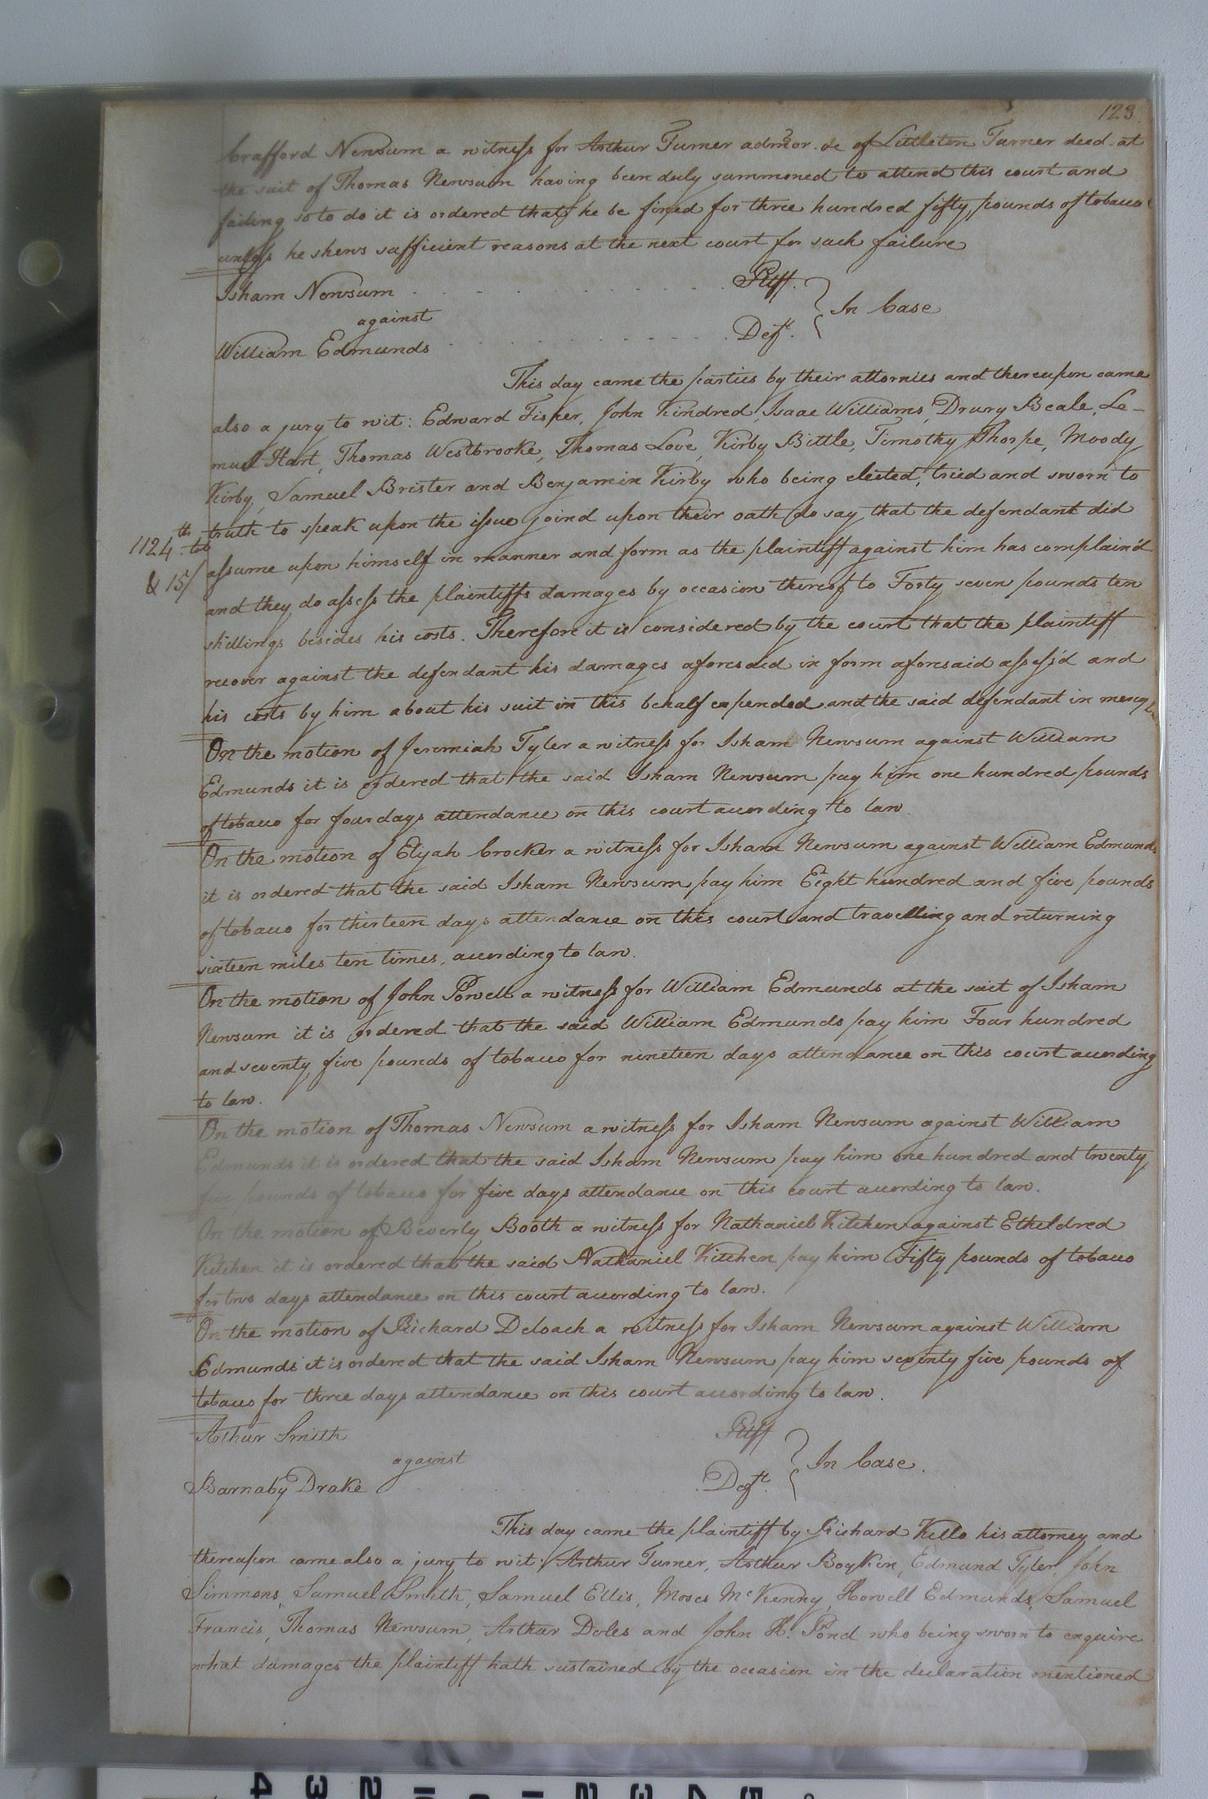 123
Crafford Newsum a witness for Arthur Turner admor. &c of Littleton Turner decd. at
the suit of Thomas Newsum having been duly summoned to attend this court and
failing so to do it is ordered that he be fined for three hundred fifty pounds of tobacco
unless he shews sufficient reasons at the next court for such failure
Isham Newsum . . . . . . . . . Pltff.
against } In Case
William Edmunds . . . . . . . . . Deft.
This day came the parties by their attornies and thereupon came
also a jury to wit: Edward Fisher, John Kindred, Isaac Williams, Drury Beale, Le-
muel Hart, Thomas Westbrooke, Thomas Love, Kirby Bittle, Timothy Thorpe, Moody
Kirby, Samuel Brister and Benjamin Kirby who being elected, tried and sworn to
truth to speak upon the issue joind upon their oath do say that the defendant did
1124th tob
& 15/
assume upon himself in manner and form as the plaintiff against him has complain'd
and they do assess the plaintiffs damages by occasion thereof to Forty seven pounds ten
shillings besides his costs. Therefore it is considered by the court that the plaintiff
recover against the defendant his damages aforesaid in form aforesaid assess'd and
his costs by him about his suit in this behalf expended and the said defendant in mercy &c
On the motion of Jeremiah Tyler a witness for Isham Newsum against William
Edmunds it is ordered that the said Isham Newsum pay him one hundred pounds
of tobacco for four days attendance on this court according to law.
On the motion of Elijah Crocker a witness for Isham Newsum against William Edmunds
it is ordered that the said Isham Newsum pay him Eight hundred and five pounds
of tobacco for thirteen days attendance on this court and travelling and returning
sixteen miles ten times, according to law.
On the motion of John Powell a witness for William Edmunds at the suit of Isham
Newsum it is ordered that the said William Edmunds pay him Four hundred
and seventy five pounds of tobacco for nineteen days attendance on this court according
to law.
On the motion of Thomas Newsum a witness for Isham Newsum against William
Edmunds it is ordered that the said Isham Newsum pay him one hundred and twenty
five pounds of tobacco for five days attendance on this court according to law.
On the motion of Beverly Booth a witness for Nathaniel Kitchen against Etheldred
Kitchen it is ordered that the said Nathaniel Kitchen pay him Fifty pounds of tobacco
for two days attendance on this court according to law.
On the motion of Richard Deloach a witness for Isham Newsum against William
Edmunds it is ordered that the said Isham Newsum pay him seventy five pounds of
tobacco for three days attendance on this court according to law.
Arthur Smith Pltff
against } In Case.
Barnaby Drake . . . . Deft.
This day came the plaintiff by Richard Kello his attorney and
thereupon came also a jury to wit: Arthur Turner, Arthur Boykin, Edmund Tyler, John
Simmons, Samuel Smith, Samuel Ellis, Moses McKenny, Howell Edmunds, Samuel
Francis, Thomas Newsum, Arthur Doles and John H. Pond who being sworn to enquire
what damages the plaintiff hath sustained by the occasion in the declaration mentioned